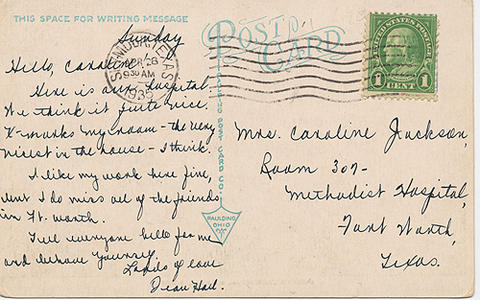 THIS SPACE FOR WRITING MESSAGE
POST CARD
Sunday
Hello, Caroline
Here is our hospital.
We think it quite nice.
X marks my room – the very
nicest in the house – I think.
I like my work here fine,
but I do miss all of the friends
in Ft. Worth.
Tell everyone hello for me
and behave yourself.
Loads of love
TEXAS
APR 28
930 AM
1935
UNITED STATES POSTAGE
1 CENT 1
POST CARD CO.
PAULDING
OHIO
Mrs. Caroline Jackson,
Room 307-
Methodist Hospital,
Fort Worth,
Texas.